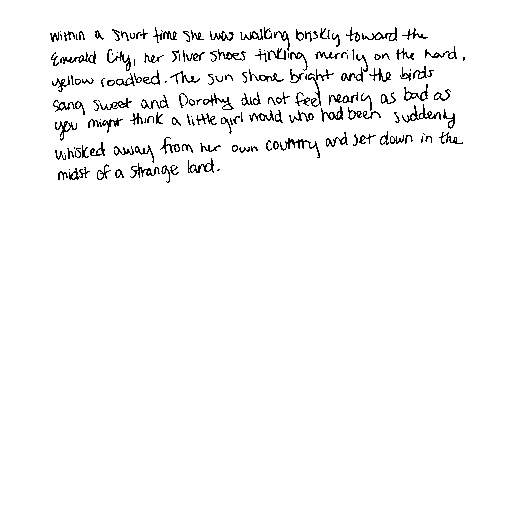 Within a short time she was walking briskly toward the
Emerald City, her silver shoes tinkling merrily on the hard,
yellow roadbed. The sun shone bright and the birds
sang sweet and Dorothy did not feel nearly as bad as
you might think a little girl would who had been suddenly
whisked away from her own country and set down in the
midst of a strange land.